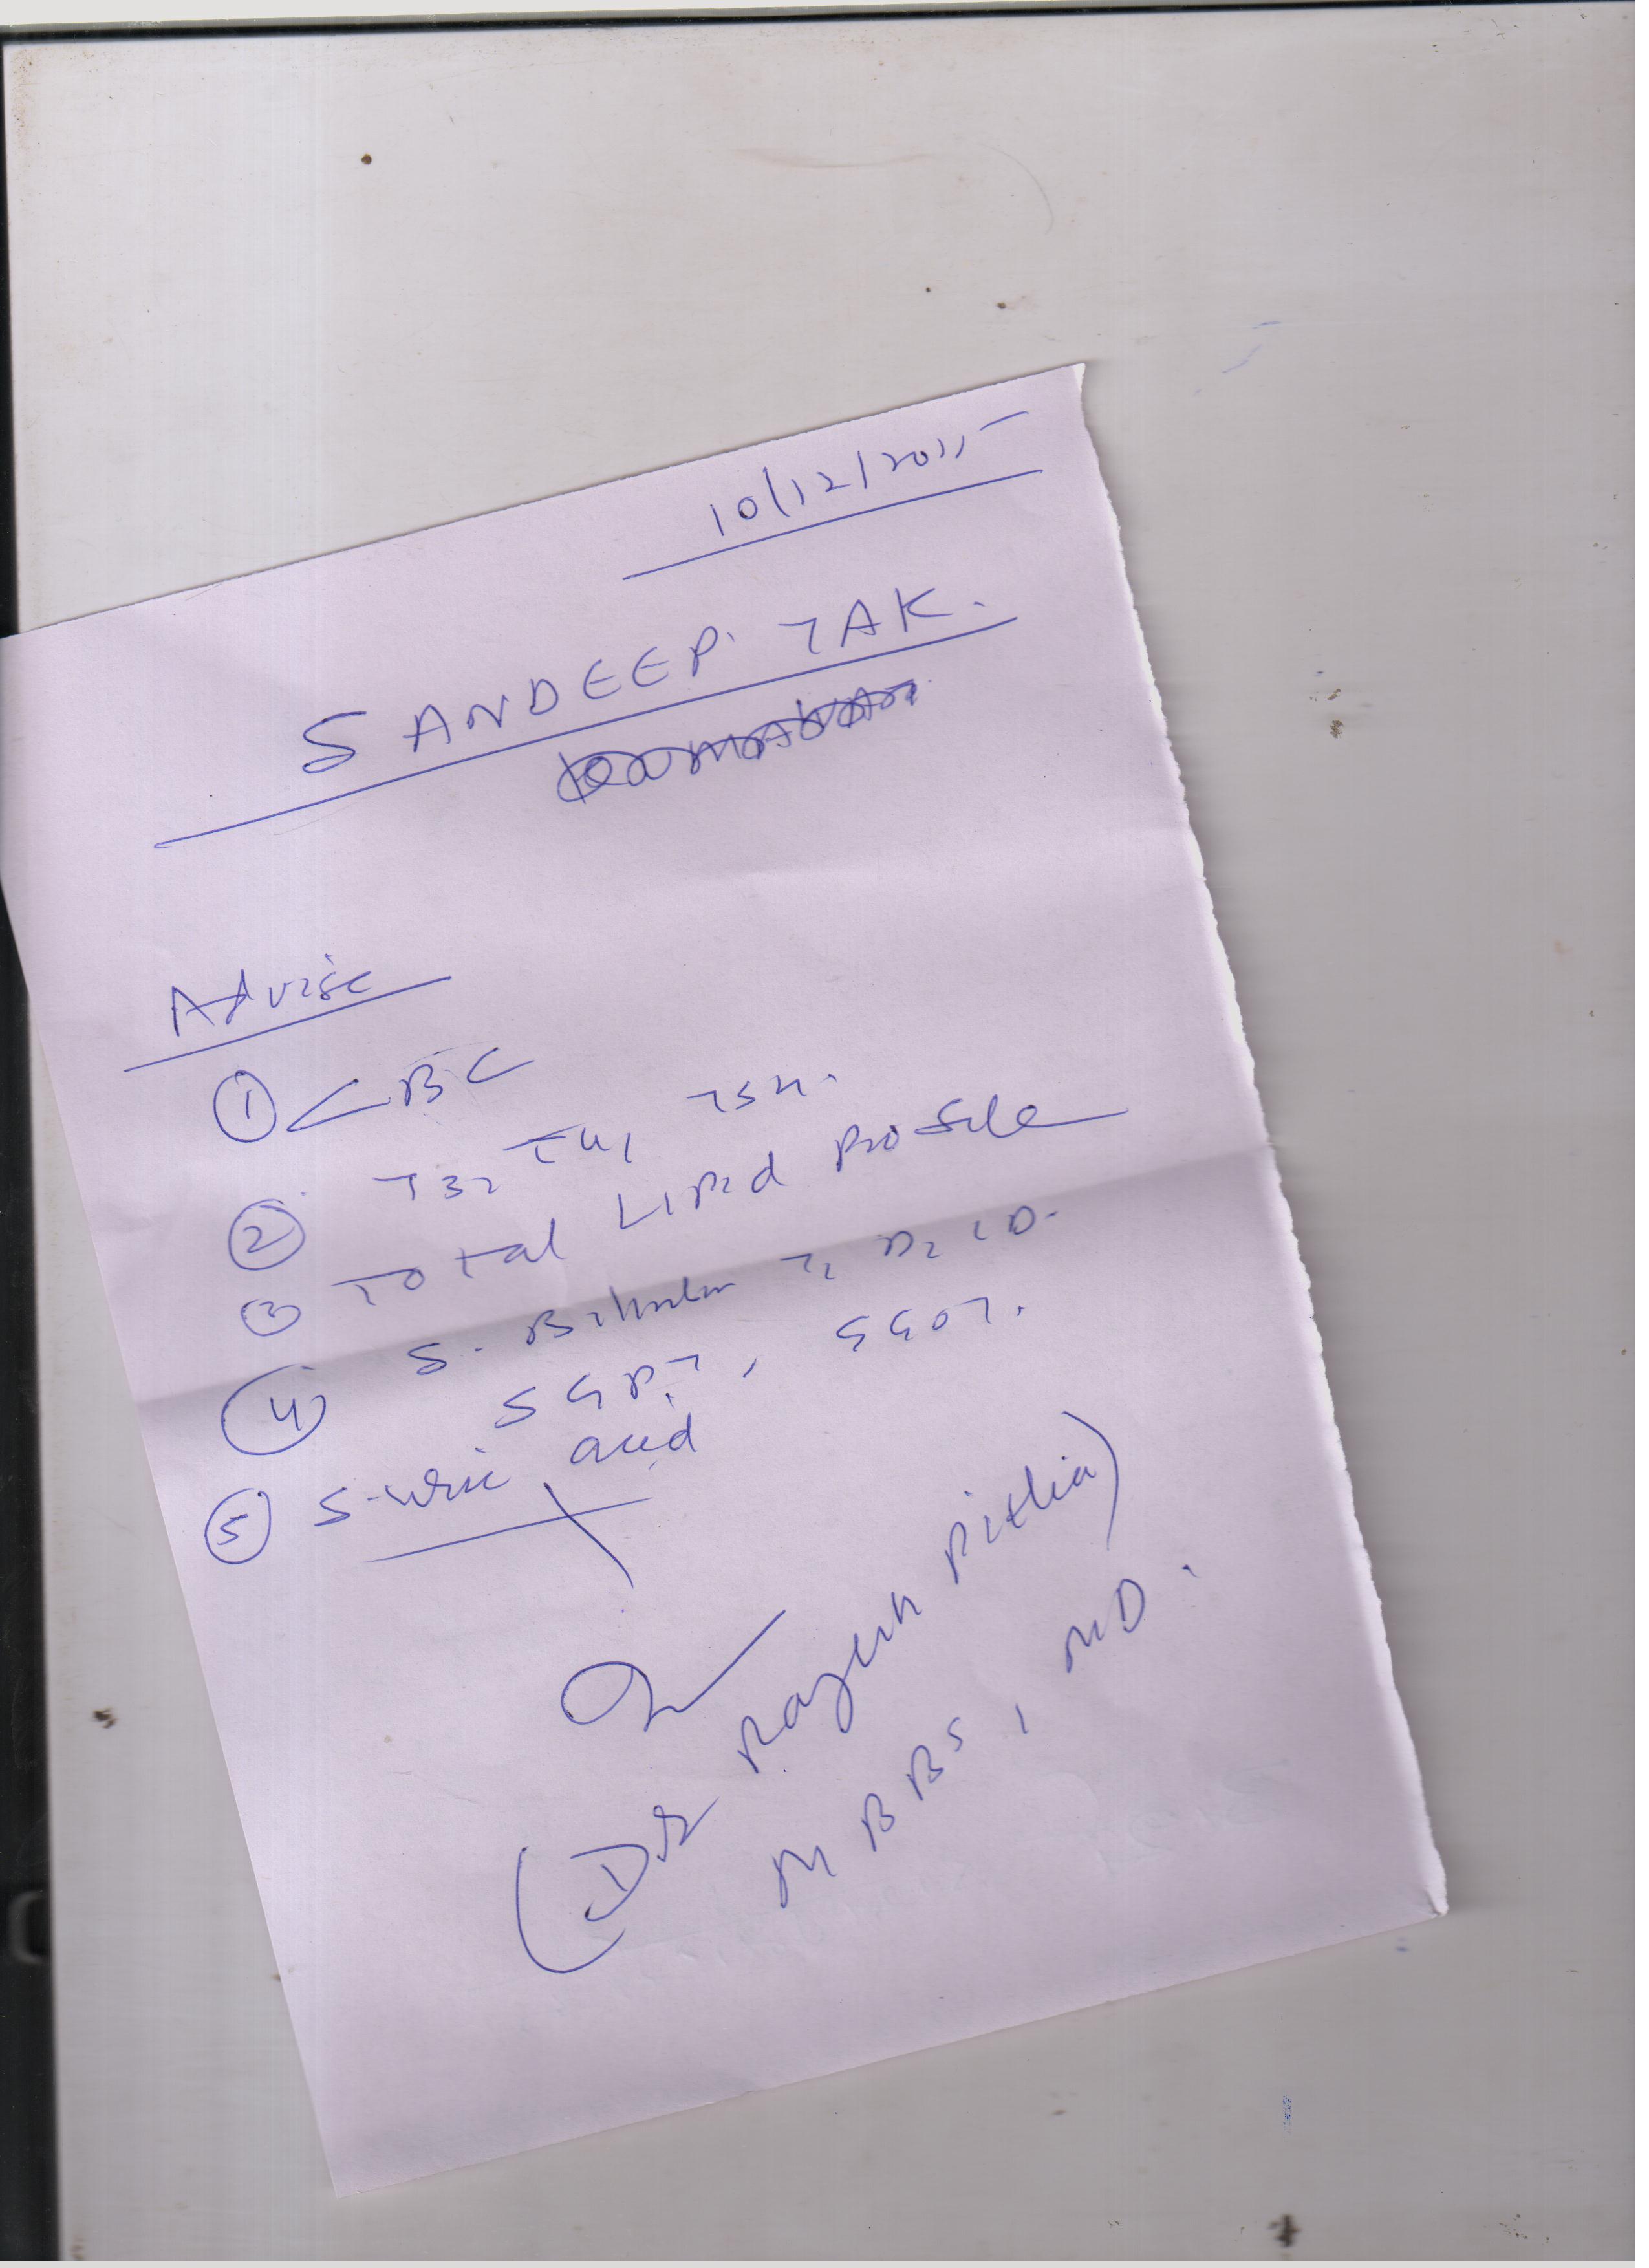 10/12/2015
SANDEEP. TAK.
Advise
① CBC
② T3, T4, TSH.
③ Total Lipid Profile
④ S. Bilirubin T, D, ID.
SGPT, SGOT.
⑤ S. uric acid
(Dr Rajesh Pithia)
MBBS, MD.